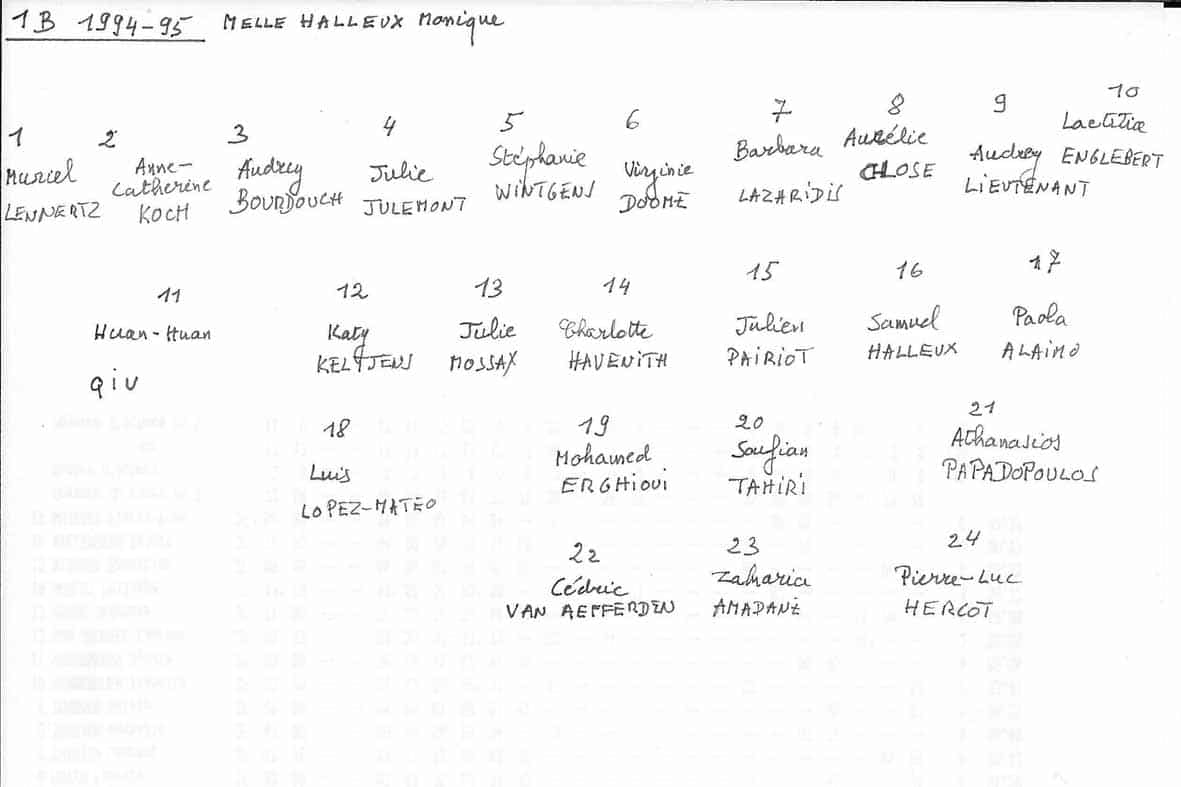 1B 1994-95 MELLE HALLEUX Monique
1 2 3 4 5 6 7 8 9 10
Muriel LENNERTZ
Anne-Catherine KOCH
Audrey BOURDOUCH
Julie JULEMONT
Stéphanie WINTGENS
Virginie DOOMÉ
Barbara LAZARIDIS
Aurélie CLOSE
Audrey LIEUTENANT
Laetitia ENGLEBERT
11 12 13 14 15 16 17
Huan-Huan QIU
Katy KELTJENS
Julie MOSSAX
Charlotte HAVENITH
Julien PAIRIOT
Samuel HALLEUX
Paola ALAIMO
18 19 20 21
Luis LOPEZ-MATÉO
Mohamed ERGHIOUI
Soufian TAHIRI
Athanasios PAPADOPOULOS
22 23 24
Cédric VAN AEFFERDEN
Zaharia AMADANE
Pierre-Luc HERCOT